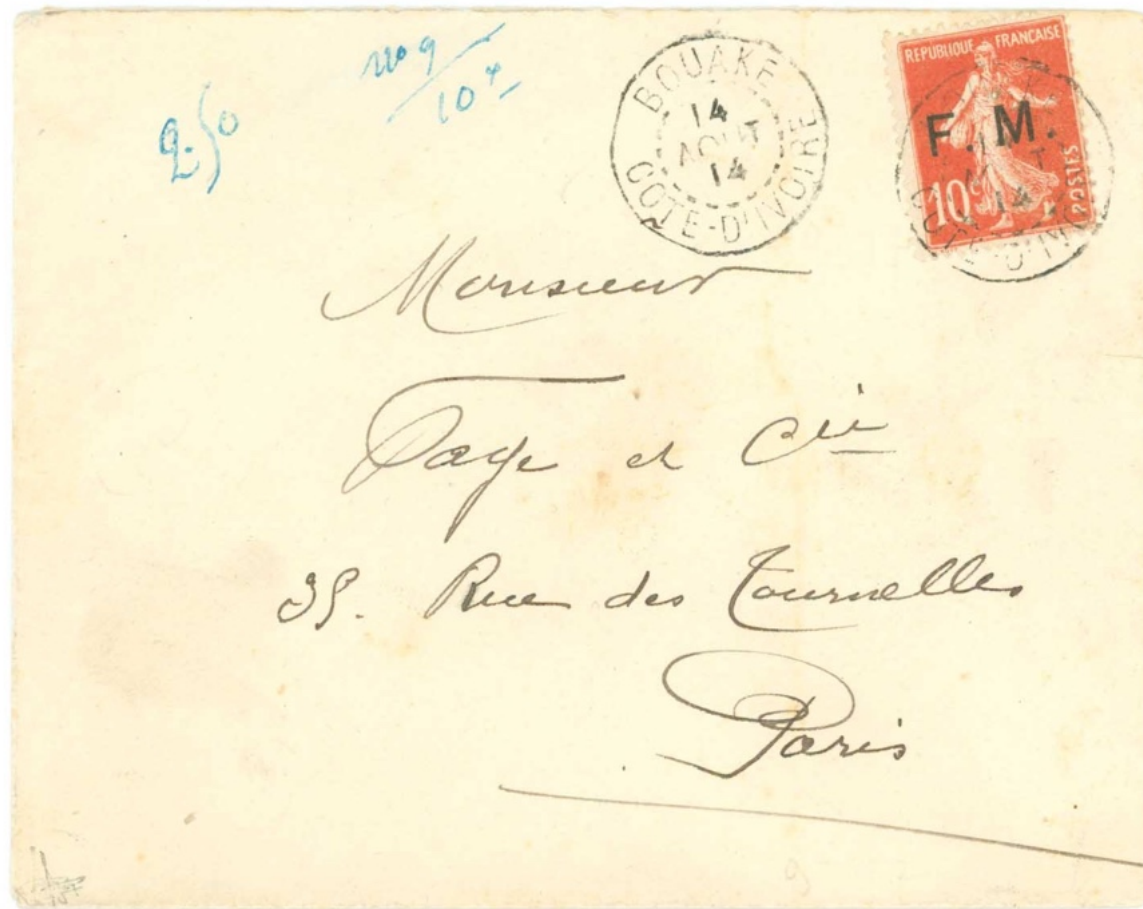 2.50
10
BOUAKE
14
AOUT
14
COTE-D'IVOIRE
REPUBLIQUE FRANÇAISE
F.M.
10c
POSTES
14
Monsieur
Faye et Cie
35. Rue des Tournelles
Paris